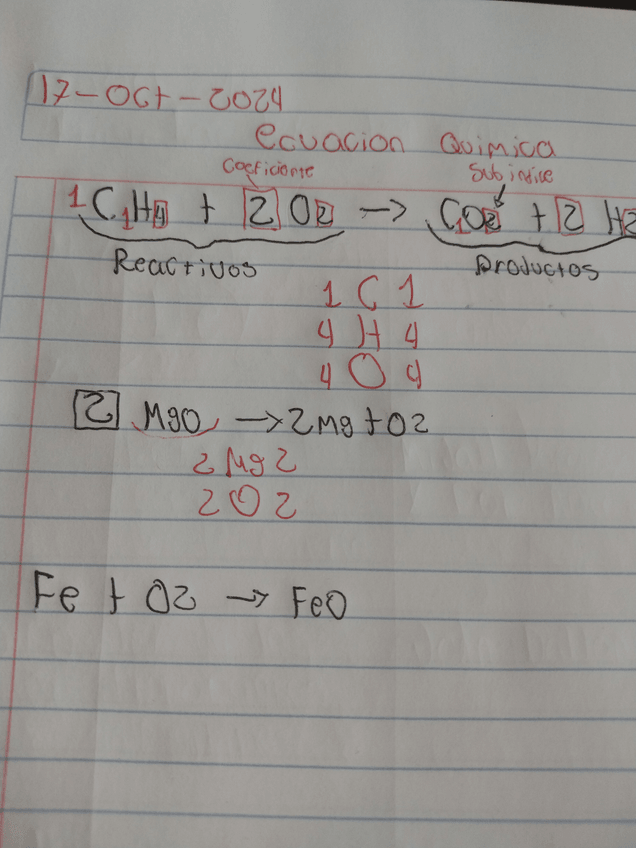 17-Oct-2024
Ecuacion Quimica
Coeficiente Subindice
1C1H4 + 2 O2 → C1O2 + 2 H2
Reactivos Productos
1 C 1
4 H 4
4 O 4
2 MgO → 2Mg + O2
2 Mg 2
2 O 2
Fe + O2 → FeO